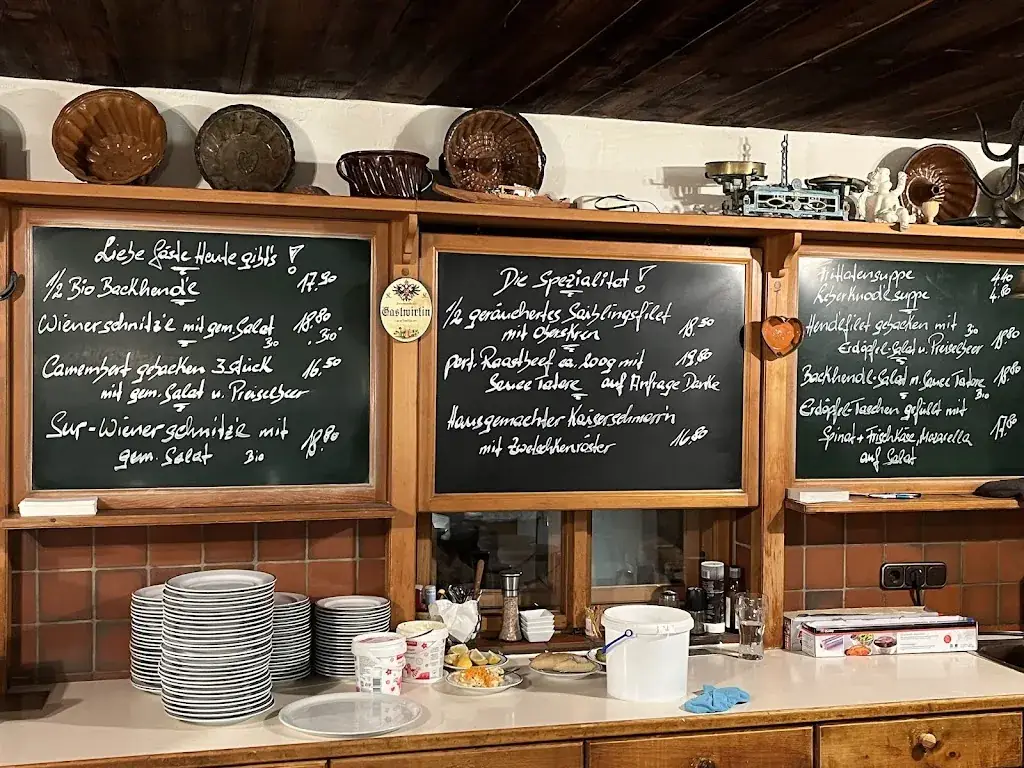 Liebe Gäste Heute gibt's !
1/2 Bio Backhendl 17.90
Wienerschnitzel mit gem. Salat 18.80
Bio
Camembert gebacken 3 stück 16.50
mit gem. Salat u. Preiselbeer
Sur-Wienerschnitzel mit
gem. Salat Bio 18.80
Gastwirtin
Die Spezialität !
1/2 geräuchertes Saiblingsfilet
mit Oberskren 18.50
port. Roastbeef ca. 200g mit 19.80
Sauce Tatare auf Anfrage Danke
Hausgemachter Kaiserschmarrn
mit Zwetschkenröster 16.80
Frittatensuppe 4.40
Leberknödelsuppe 4.80
Hendlfilet gebacken mit
Erdäpfel-Salat u. Preiselbeer 18.80
Backhendl-Salat m. Sauce Tatare 18.80
Bio
Erdäpfel-Taschen gefüllt mit
Spinat + Frischkäse, Mozarella 17.80
auf Salat